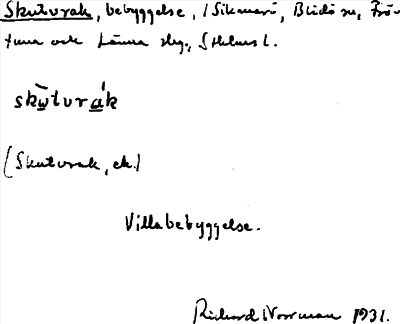 Skutvrak, bebyggelse, (Sikmarö, Blidö sn, Frö-
tuna och Länna skg., Sthlms l.
skẁtvrák
(Skutvrak, ek.)
Villabebyggelse.
Richard Norrman 1931.